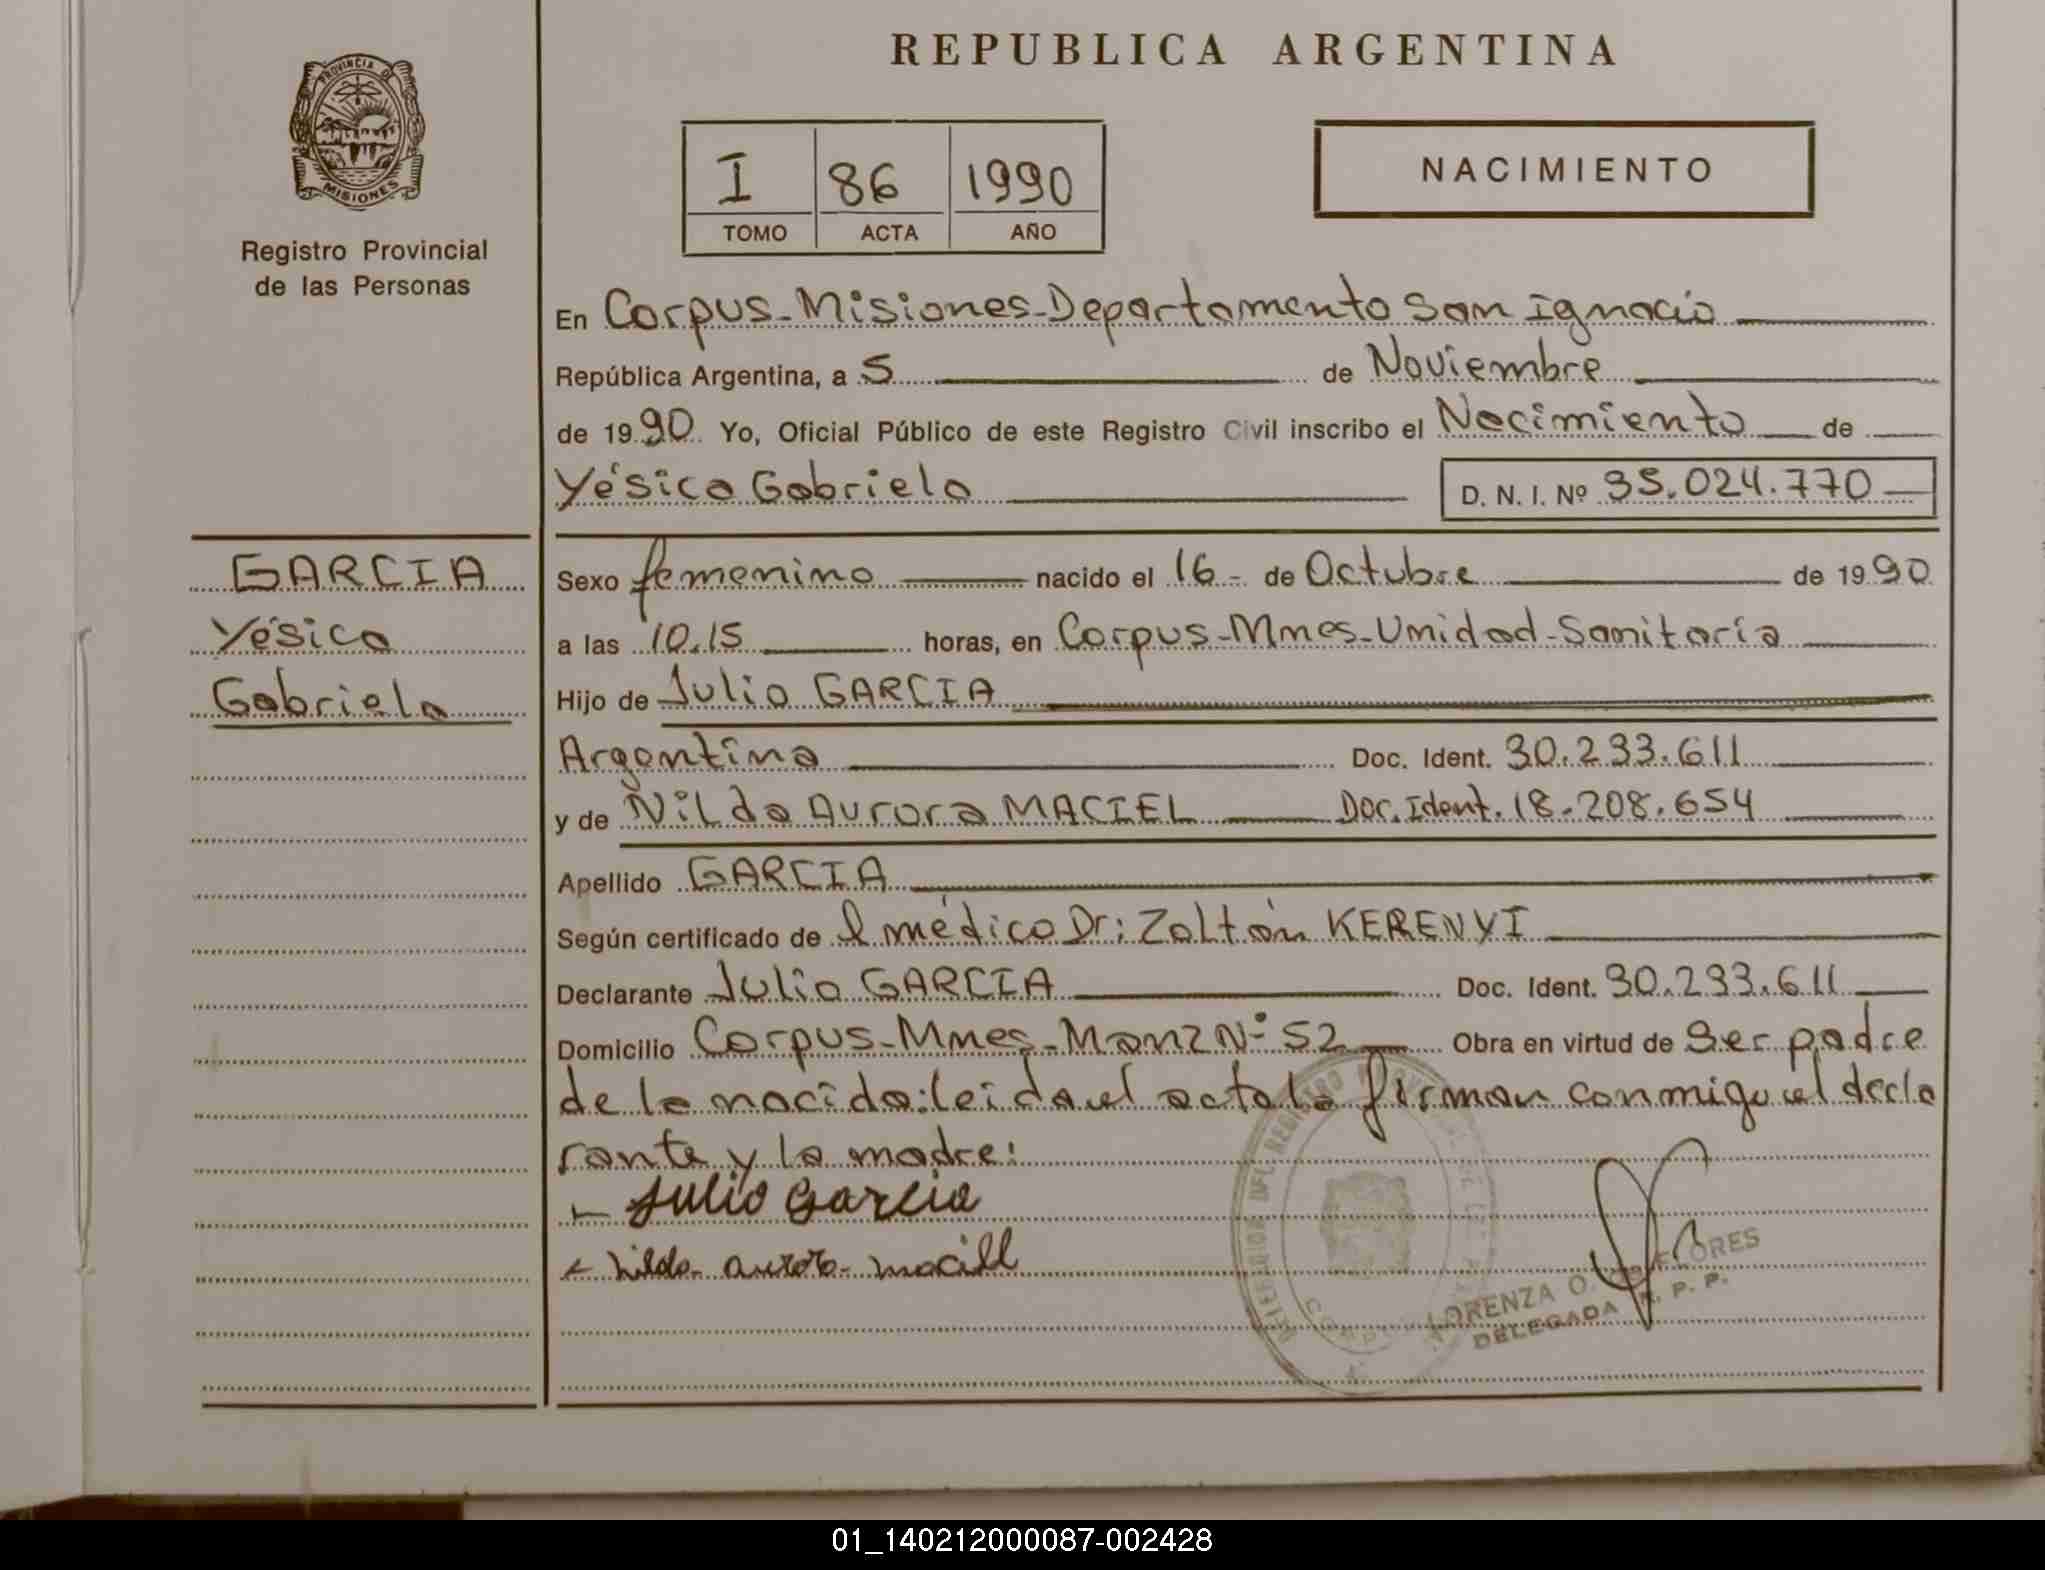 REPUBLICA ARGENTINA
PROVINCIA DE
MISIONES
Registro Provincial
de las Personas
I 86 1990
TOMO ACTA AÑO
NACIMIENTO
En Corpus-Misiones-Departamento San Ignacio
República Argentina, a 5 de Noviembre
de 1990 Yo, Oficial Público de este Registro Civil inscribo el Nacimiento de
Yésica Gabriela D. N. I. Nº 35.024.770
GARCIA
Yésica
Gabriela
Sexo femenino nacido el 16- de Octubre de 1990
a las 10.15 horas, en Corpus-Mnes-Unidad-Sanitaria
Hijo de Julio GARCIA
Argentina Doc. Ident. 30.233.611
y de Nilda Aurora MACIEL Doc. Ident. 18.208.654
Apellido GARCIA
Según certificado de l médico Dr: Zoltán KERENYI
Declarante Julio GARCIA Doc. Ident. 30.233.611
Domicilio Corpus-Mnes-Manz Nº 52 Obra en virtud de Ser padre
de la nacida: leida el acta la firman conmigo el decla
rante y la madre:
Julio Garcia
nilda aurora macill
LORENZA O. FLORES
DELEGADA R. P. P.
01_140212000087-002428